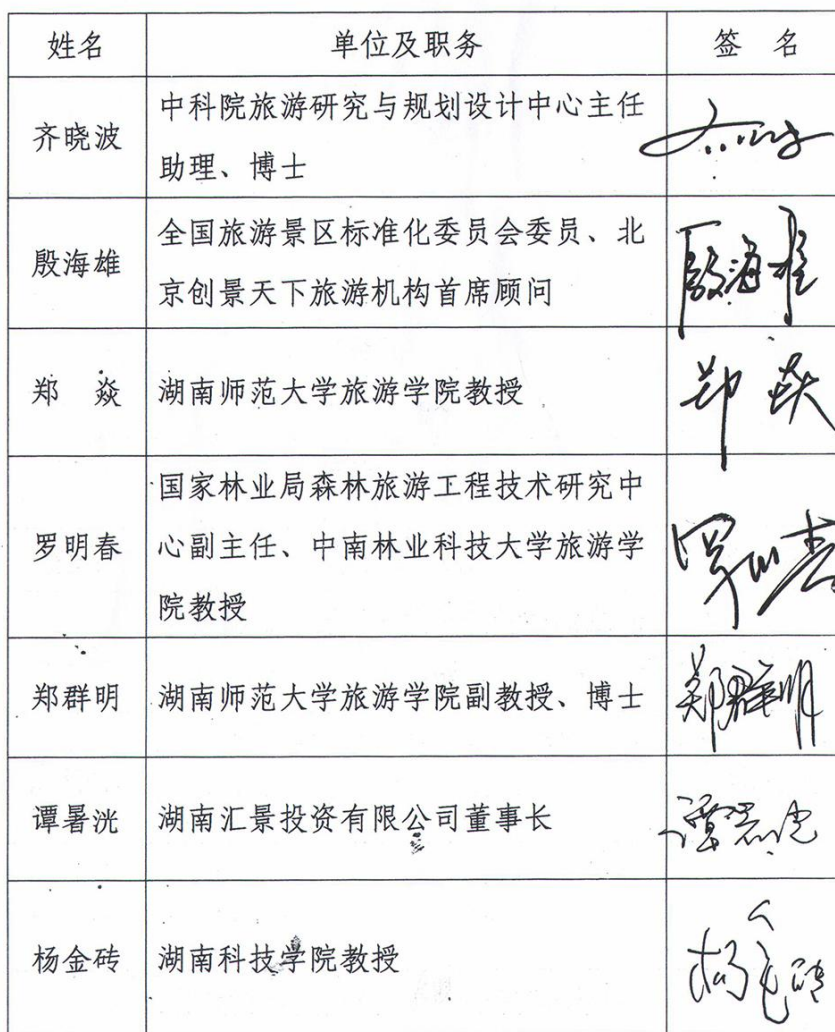 姓名 单位及职务 签 名
齐晓波 中科院旅游研究与规划设计中心主任
助理、博士
殷海雄 全国旅游景区标准化委员会委员、北
京创景天下旅游机构首席顾问
殷海雄
郑 焱 湖南师范大学旅游学院教授 郑 焱
罗明春 国家林业局森林旅游工程技术研究中
心副主任、中南林业科技大学旅游学
院教授
罗明春
郑群明 湖南师范大学旅游学院副教授、博士 郑群明
谭暑洸 湖南汇景投资有限公司董事长 谭暑洸
杨金砖 湖南科技学院教授 杨金砖